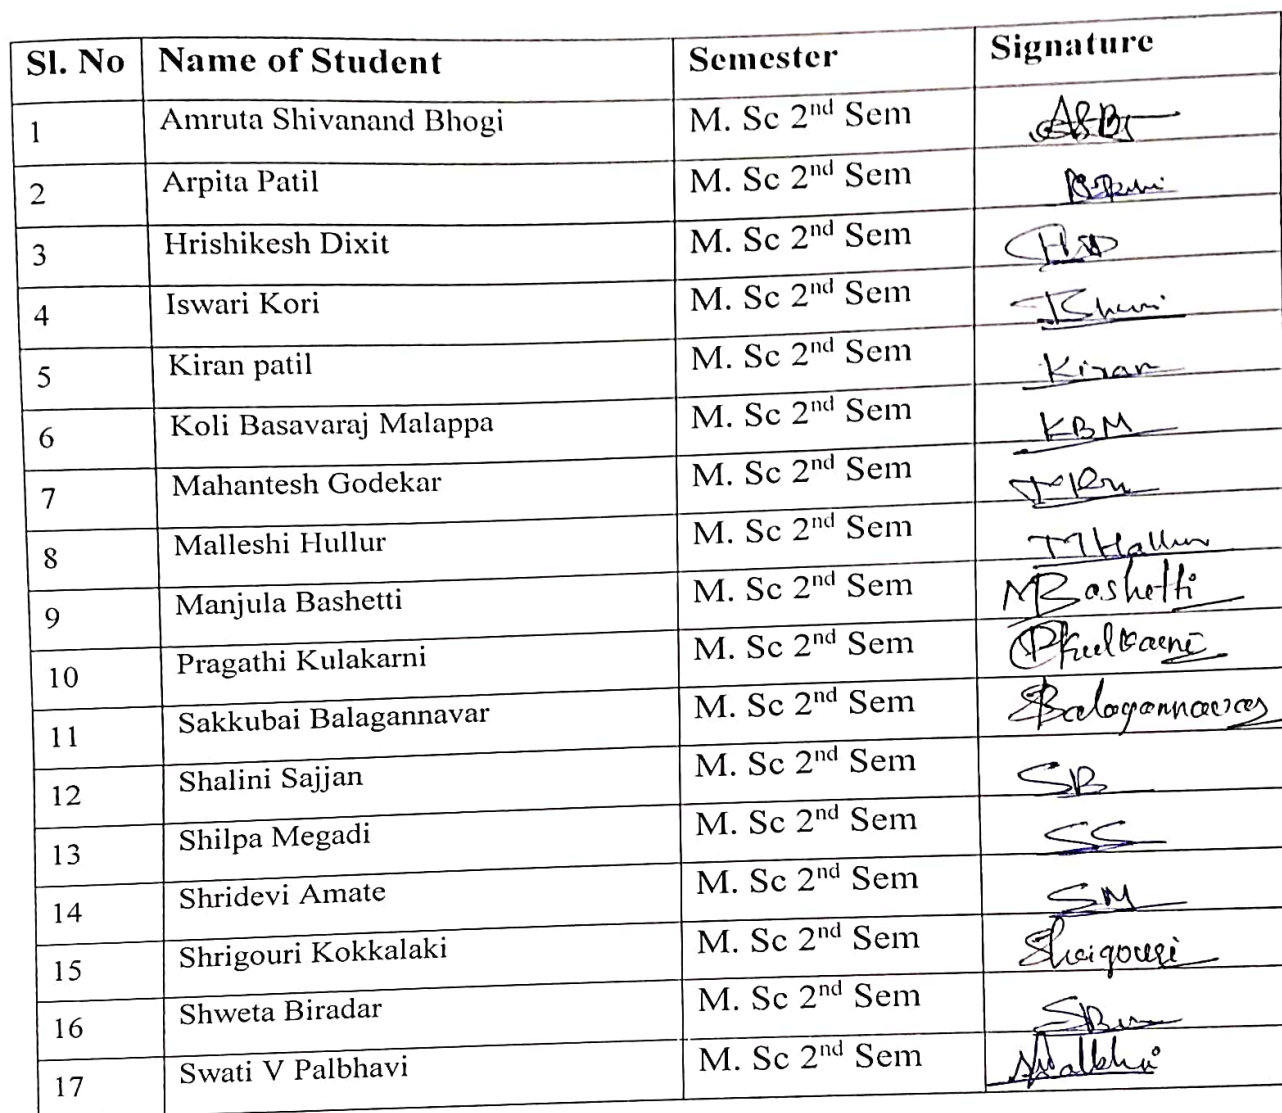 Sl. No Name of Student Semester Signature
1 Amruta Shivanand Bhogi M. Sc 2nd Sem ASB
2 Arpita Patil M. Sc 2nd Sem
3 Hrishikesh Dixit M. Sc 2nd Sem HD
4 Iswari Kori M. Sc 2nd Sem
5 Kiran patil M. Sc 2nd Sem Kiran
6 Koli Basavaraj Malappa M. Sc 2nd Sem KBM
7 Mahantesh Godekar M. Sc 2nd Sem
8 Malleshi Hullur M. Sc 2nd Sem MHallur
9 Manjula Bashetti M. Sc 2nd Sem MBashetti
10 Pragathi Kulakarni M. Sc 2nd Sem Pkulkarni
11 Sakkubai Balagannavar M. Sc 2nd Sem SBalagannavar
12 Shalini Sajjan M. Sc 2nd Sem SB
13 Shilpa Megadi M. Sc 2nd Sem SS
14 Shridevi Amate M. Sc 2nd Sem SM
15 Shrigouri Kokkalaki M. Sc 2nd Sem Shrigouri
16 Shweta Biradar M. Sc 2nd Sem
17 Swati V Palbhavi M. Sc 2nd Sem